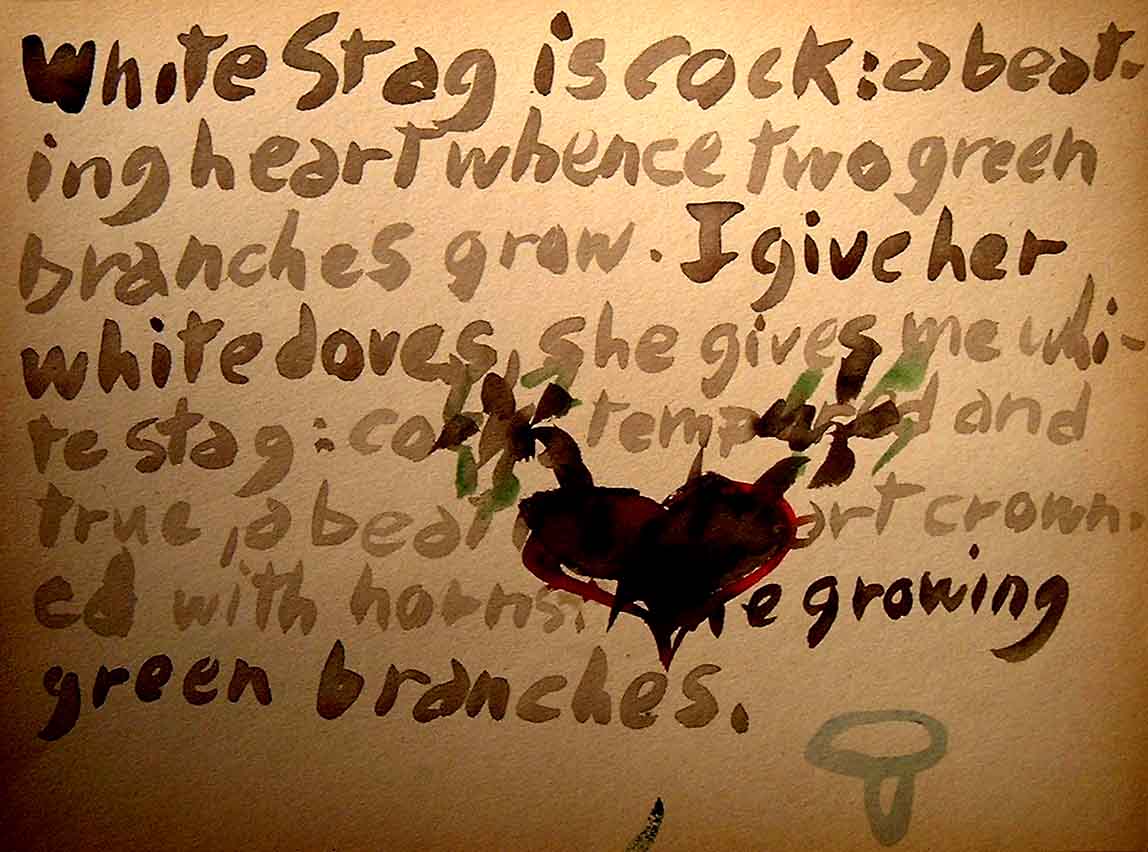 White Stag is cock: a beat-
ing heart whence two green
branches grow. I give her
white doves, she gives me whi-
te stag: tempered and
true, a beat art crown-
ed with horns. growing
green branches.